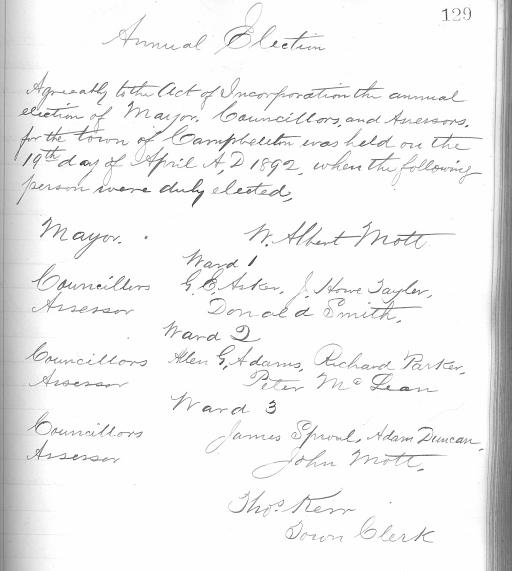 129
Annual Election
Agreeably to the Act of Incorporation the annual
election of Mayor. Councillors, and Assessors.
for the town of Campbellton was held on the
19th day of April A, D 1892, when the following
person were duly elected,
Mayor. W. Albert Mott
Ward 1
Councillors G. E. Asker, J. Howe Taylor,
Assessor Donald Smith,
Ward 2
Councillors Allen G. Adams, Richard Parker,
Assessor Peter McLean
Ward 3
Councillors James Sproul, Adam Duncan,
Assessor John Mott,
Thos Kerr
Town Clerk